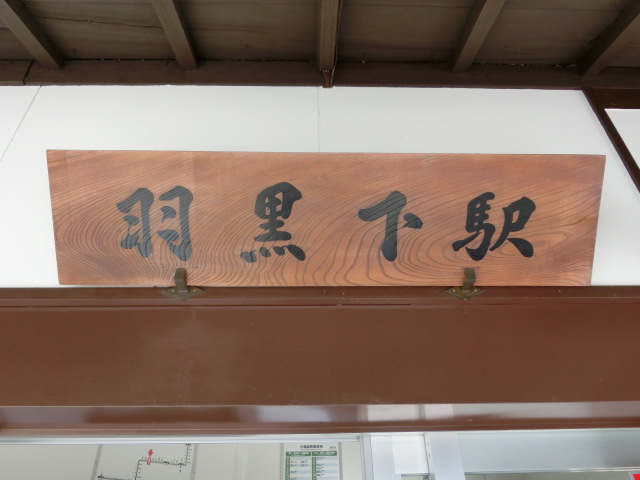 羽黒下駅